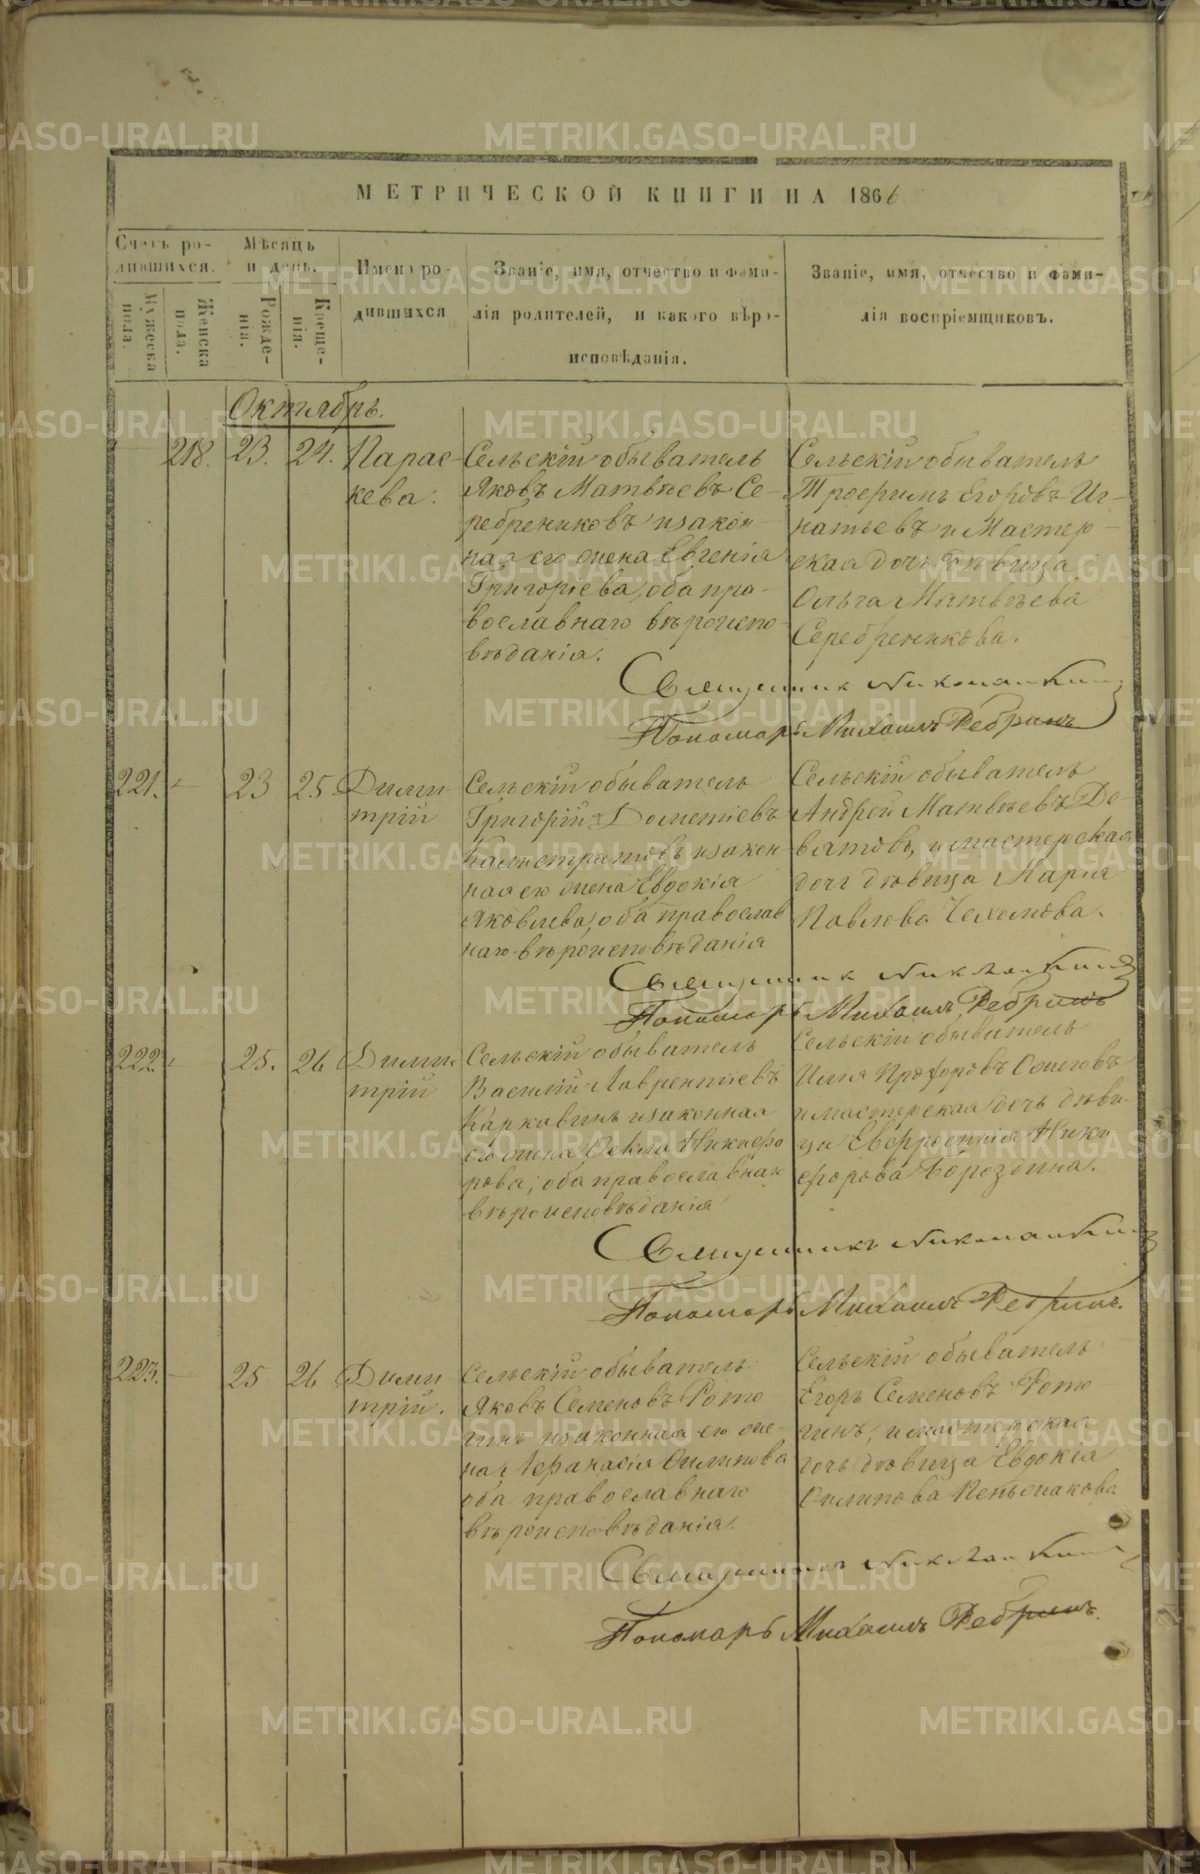 МЕТРИЧЕСКОЙ КНИГИ НА 1866
Счетъ ро-
дившихся.
Мужеска
пола.
Женска
пола.
Мѣсяцъ
и день.
Рожде-
нія.
Креще-
нія.
Имена ро-
дившихся
Званіе, имя, отчество и фами-
лія родителей, и какого вѣро-
исповѣданія.
Званіе, имя, отчество и фами-
лія воспріемщиковъ.
Октябрь.
218. 23. 24. Парас-
кева.
Сельскій обыватель
Яковъ Матвѣевъ Се-
ребрениковъ и закон-
ная его жена Евгенія
Григорьева, оба пра-
вославнаго вѣроиспо-
вѣданія.
Сельскій обыватель
Трофимъ Егоровъ Иг-
натьевъ и Мастер-
ская дочь дѣвица
Ольга Матвѣева
Серебреникова.
Священникъ
Пономарь Михаилъ Ребринъ
221. 23 25 Дими-
трій
Сельскій обыватель
Григорій Дометіевъ
и закон-
ная его жена Евдокія
Яковлева, оба православ
наго вѣроисповѣданія
Сельскій обыватель
Андрей Матвѣевъ Де-
вятовъ, и мастерская
дочь дѣвица Марія
Павлова
Священникъ
Пономарь Михаилъ Ребринъ
222. 25. 26 Дими-
трій
Сельскій обыватель
Василій Лаврентіевъ
Каркавинъ и законная
его жена Никифо
рова, оба православнаго
вѣроисповѣданія
Сельскій обыватель
Илья Прохоровъ
и мастерская дочь дѣви-
ца Ники
форова Бороздина.
Священникъ
Пономарь Михаилъ Ребринъ.
223. 25 26 Дими
трій.
Сельскій обыватель
Яковъ Семеновъ
и законная его же-
на Афанасія Филипова
оба православнаго
вѣроисповѣданія.
Сельскій обыватель
Егоръ Семеновъ
и мастерская
дочь дѣвица Евдокія
Филипова Пеньшакова
Священникъ
Пономарь Михаилъ Ребринъ.
METRIKI.GASO-URAL.RU